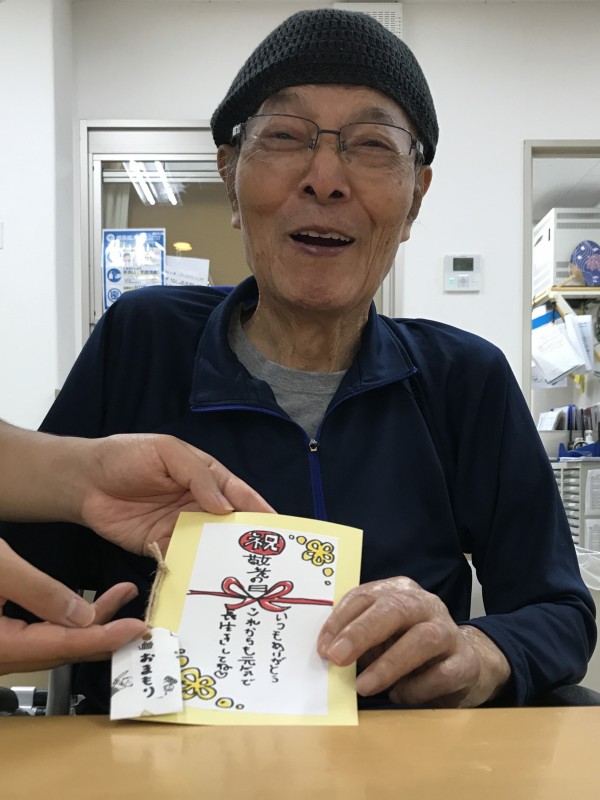 祝
敬老の日
いつもありがとう
これからも元気で
長生きしてね♡
おまもり